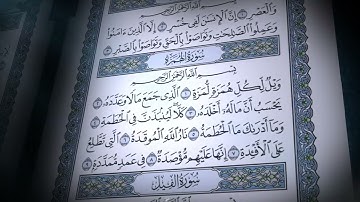 وَالْعَصْرِ ١ إِنَّ الْإِنسَانَ لَفِي خُسْرٍ ٢ إِلَّا الَّذِينَ ءَامَنُوا
وَعَمِلُوا الصَّالِحَاتِ وَتَوَاصَوْا بِالْحَقِّ وَتَوَاصَوْا بِالصَّبْرِ ٣
سُورَةُ الْهُمَزَةِ
بِسْمِ اللَّهِ الرَّحْمَٰنِ الرَّحِيمِ
وَيْلٌ لِّكُلِّ هُمَزَةٍ لُّمَزَةٍ ١ الَّذِي جَمَعَ مَالًا وَعَدَّدَهُ ٢
يَحْسَبُ أَنَّ مَالَهُ أَخْلَدَهُ ٣ كَلَّا لَيُنبَذَنَّ فِي الْحُطَمَةِ ٤
وَمَا أَدْرَاكَ مَا الْحُطَمَةُ ٥ نَارُ اللَّهِ الْمُوقَدَةُ ٦ الَّتِي تَطَّلِعُ
عَلَى الْأَفْئِدَةِ ٧ إِنَّهَا عَلَيْهِم مُّؤْصَدَةٌ ٨ فِي عَمَدٍ مُّمَدَّدَةٍ ٩
سُورَةُ الْفِيلِ